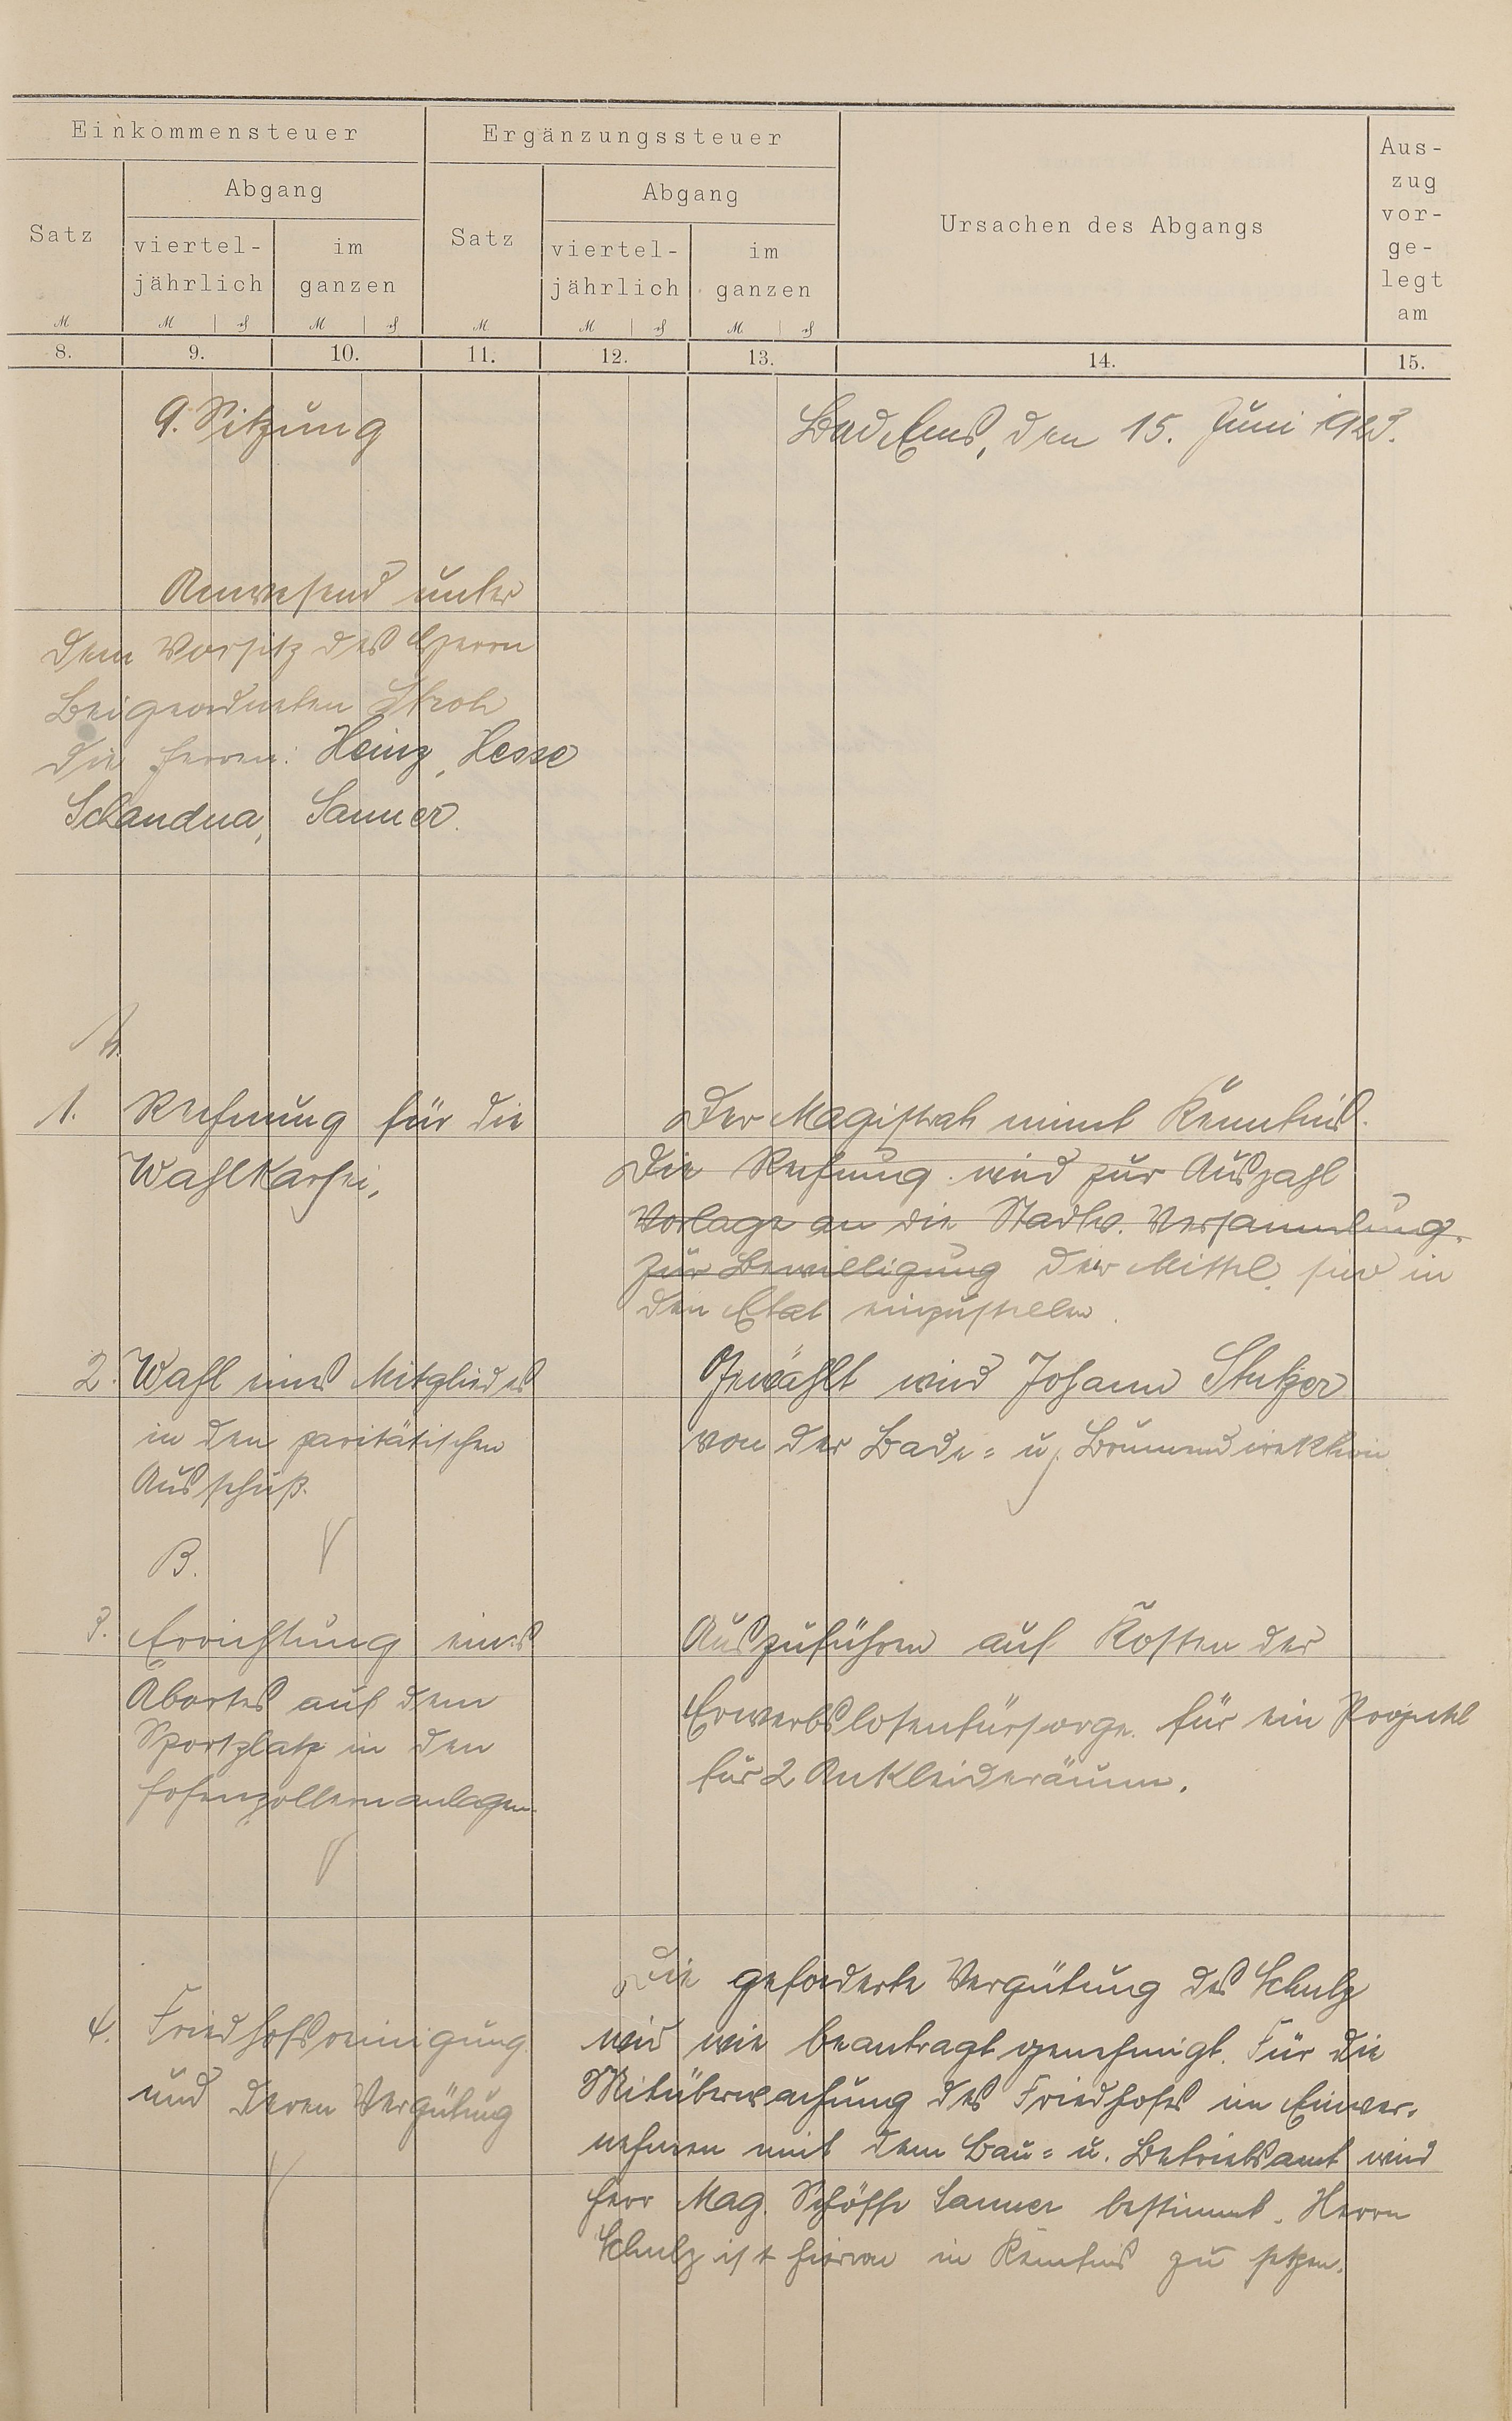 Einkommensteuer
Ergänzungssteuer
Ursachen des Abgangs
Aus-
zug
vor-
ge-
legt
am
Satz
Abgang
viertel-
jährlich
im
ganzen
Satz
Abgang
viertel-
jährlich
im
ganzen
M M ₰ M ₰ M M ₰ M ₰
8. 9. 10. 11. 12. 13. 14. 15.
9. Sitzung
Bad Ems, den 15. Juni 1923.
Anwesend unter
dem Vorsitz des Herrn
Beigeordneten Stroh
die Herren: Heinz, Hesse
Schandua, Sanner.
A.
1. Rechnung für die
Wahlkartei.
Der Magistrat nimmt Kenntnis.
Die Rechnung wird zur Auszahl
Vorlage an die Stadtv. Versammlung.
Zur Bewilligung der Mittel sind in
den Etat einzustellen.
2. Wahl eines Mitgliedes
in den paritätischen
Ausschuß.
Gewählt wird Johann Stutzer
von der Bade- u. Brunnendirektion
B.
3. Errichtung eines
Abortes auf dem
Sportplatz in den
Hohenzollernanlagen.
Auszuführen auf Kosten der
Erwerbslosenfürsorge. für ein Projekt
für 2 Ankleideräume.
4. Friedhofsreinigung
und deren Vergütung
Die geforderte Vergütung des Schulz
wird wie beantragt genehmigt. Für die
Mitüberwachung des Friedhofes im Einver-
nehmen mit dem Bau- u. Betriebsamt wird
Herr Mag. Schöffe Sanner bestimmt. Herrn
Schulz ist hiervon in Kenntnis zu setzen.